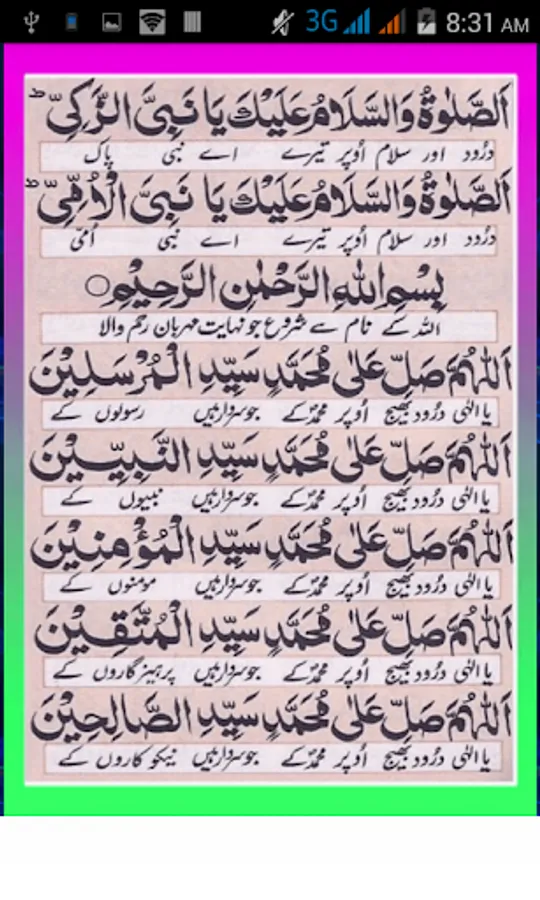 3G 8:31 AM
اَلصَّلٰوةُ وَالسَّلَامُ عَلَيْكَ يَا نَبِىَّ الزَّكِىِّ ؕ
درُود اور سلام اُوپر تیرے اے نبی پاک
اَلصَّلٰوةُ وَالسَّلَامُ عَلَيْكَ يَا نَبِىَّ الْاُمِّىِّ ؕ
درُود اور سلام اُوپر تیرے اے نبی اُمّی
بِسْمِ اللّٰهِ الرَّحْمٰنِ الرَّحِيْمِ ○
اللہ کے نام سے شروع جو نہایت مہربان رحم والا
اَللّٰهُمَّ صَلِّ عَلٰى مُحَمَّدٍ سَيِّدِ الْمُرْسَلِيْنَ
یا الٰہی درُود بھیج اُوپر محمدؐ کے جو سردار ہیں رسولوں کے
اَللّٰهُمَّ صَلِّ عَلٰى مُحَمَّدٍ سَيِّدِ النَّبِيّٖيْنَ
یا الٰہی درُود بھیج اُوپر محمدؐ کے جو سردار ہیں نبیوں کے
اَللّٰهُمَّ صَلِّ عَلٰى مُحَمَّدٍ سَيِّدِ الْمُؤْمِنِيْنَ
یا الٰہی درُود بھیج اُوپر محمدؐ کے جو سردار ہیں مومنوں کے
اَللّٰهُمَّ صَلِّ عَلٰى مُحَمَّدٍ سَيِّدِ الْمُتَّقِيْنَ
یا الٰہی درُود بھیج اُوپر محمدؐ کے جو سردار ہیں پرہیزگاروں کے
اَللّٰهُمَّ صَلِّ عَلٰى مُحَمَّدٍ سَيِّدِ الصَّالِحِيْنَ
یا الٰہی درُود بھیج اُوپر محمدؐ کے جو سردار ہیں نیکو کاروں کے